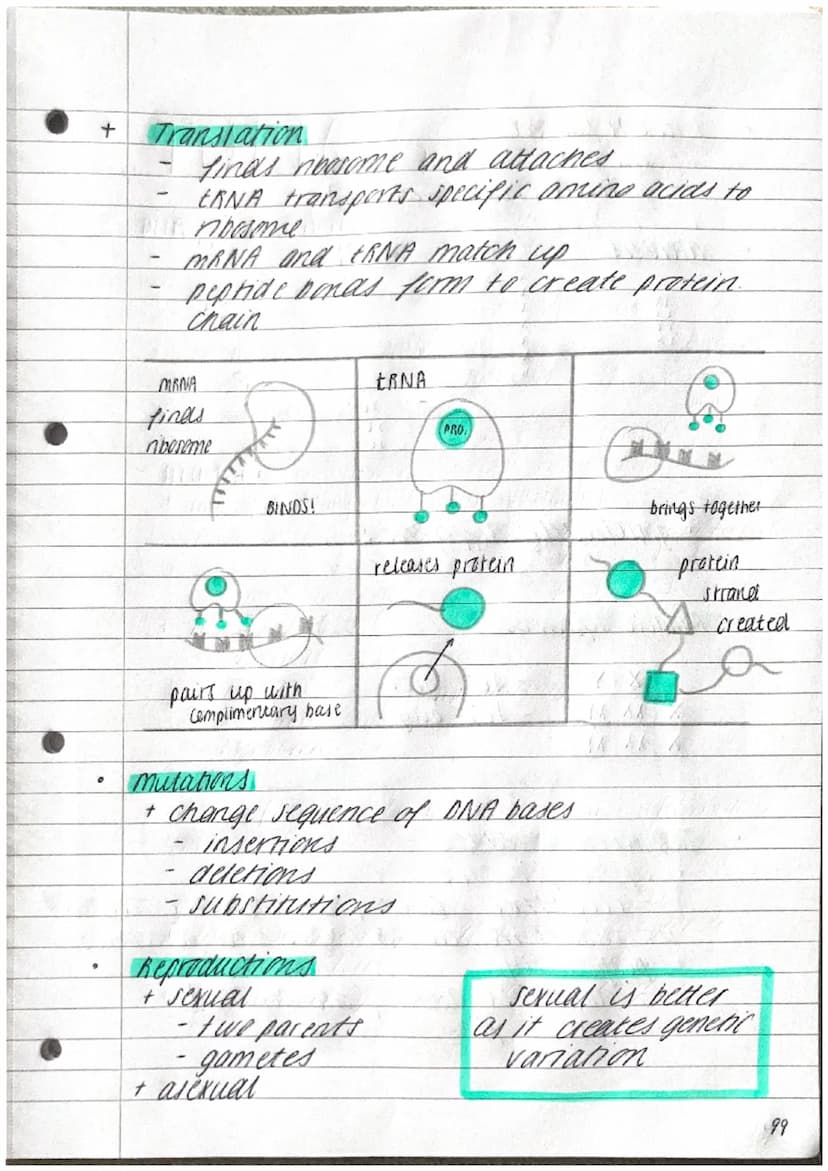 + Translation
- finds ribosome and attaches
- tRNA transports specific amino acids to
ribosome
- mRNA and tRNA match up
- peptide bonds form to create protein
chain
mRNA
finds
ribosome
BINDS!
tRNA
PRO.
brings together
pairs up with
complimentary base
releases protein
protein
strand
created
• Mutations
+ change sequence of DNA bases
- insertions
- deletions
- substitutions
• Reproductions
+ sexual
- two parents
- gametes
+ asexual
sexual is better
as it creates genetic
variation
99